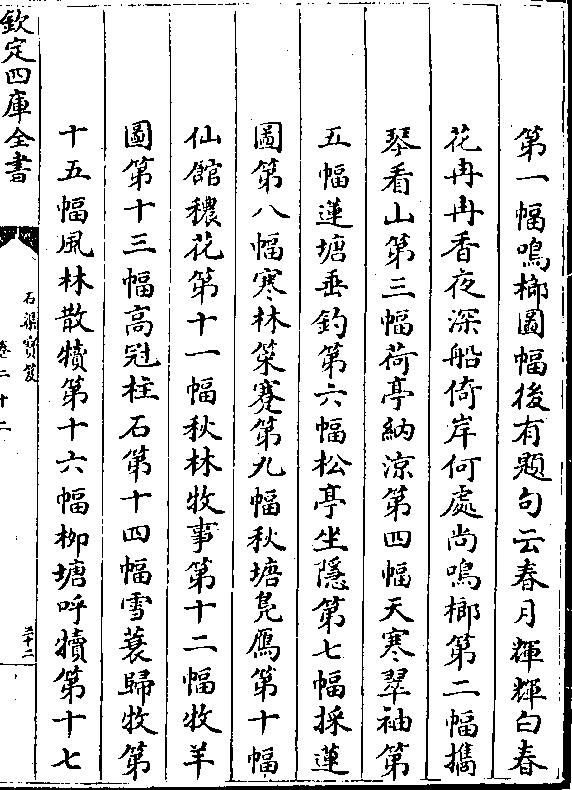 第一幅鳴榔圖幅後有題句云春月輝輝白春
花冉冉香夜深船倚岸何處尚鳴榔第二幅擕
琴看山第三幅荷亭納涼第四幅天寒翠袖第
五幅蓮塘垂釣第六幅松亭坐隱第七幅採蓮
圖第八幅寒林策蹇第九幅秋塘鳬鴈第十幅
仙館穠花第十一幅秋林牧事第十二幅牧羊
圖第十三幅高冠柱石第十四幅雪蓑歸牧第
十五幅風林散犢第十六幅柳塘呼犢第十七
欽定四庫全書
石渠寶笈
卷二十二
三十二